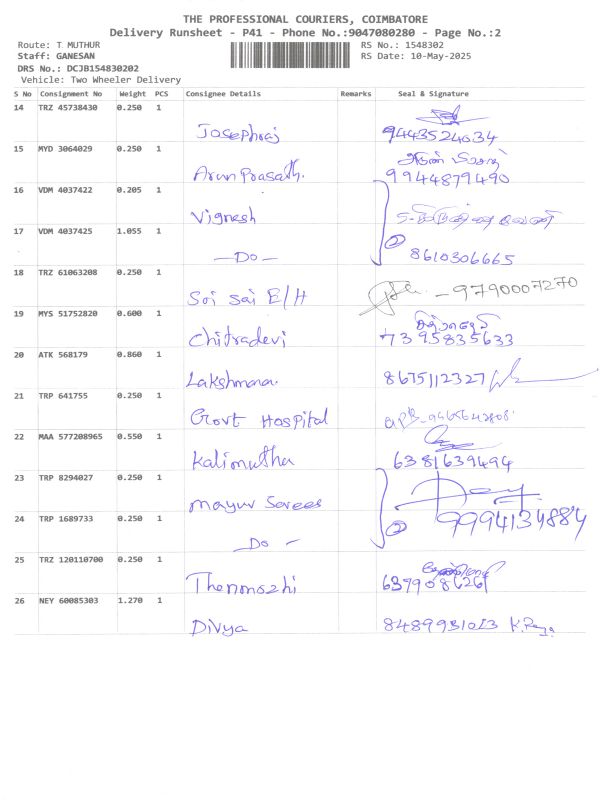 THE PROFESSIONAL COURIERS, COIMBATORE
Delivery Runsheet - P41 - Phone No.:9047080280 - Page No.:2
Route: T MUTHUR
RS No.: 1548302
Staff: GANESAN
RS Date: 10-May-2025
DRS No.: DCJB154830202
Vehicle: Two Wheeler Delivery
S No Consignment No Weight PCS Consignee Details Remarks Seal & Signature
14 TRZ 45738430 0.250 1
Josephraj 9443524034
15 MYD 3064029 0.250 1
Arun Prasath. 9944879490
16 VDM 4037422 0.205 1
Vignesh
17 VDM 4037425 1.055 1
—Do— 2 8610306665
18 TRZ 61063208 0.250 1
Sri Sai E/H - 9790007270
19 MYS 51752820 0.600 1
Chitradevi 7395835633
20 ATK 568179 0.860 1
Lakshmana. 8675112327
21 TRP 641755 0.250 1
Govt Hospital
22 MAA 577208965 0.550 1
Kalimuthu 6381639494
23 TRP 8294027 0.250 1
Mayur Sarees
24 TRP 1689733 0.250 1
— Do — 2 9994134884
25 TRZ 120110700 0.250 1
Thenmozhi
26 NEY 60085303 1.270 1
Divya 8489931013